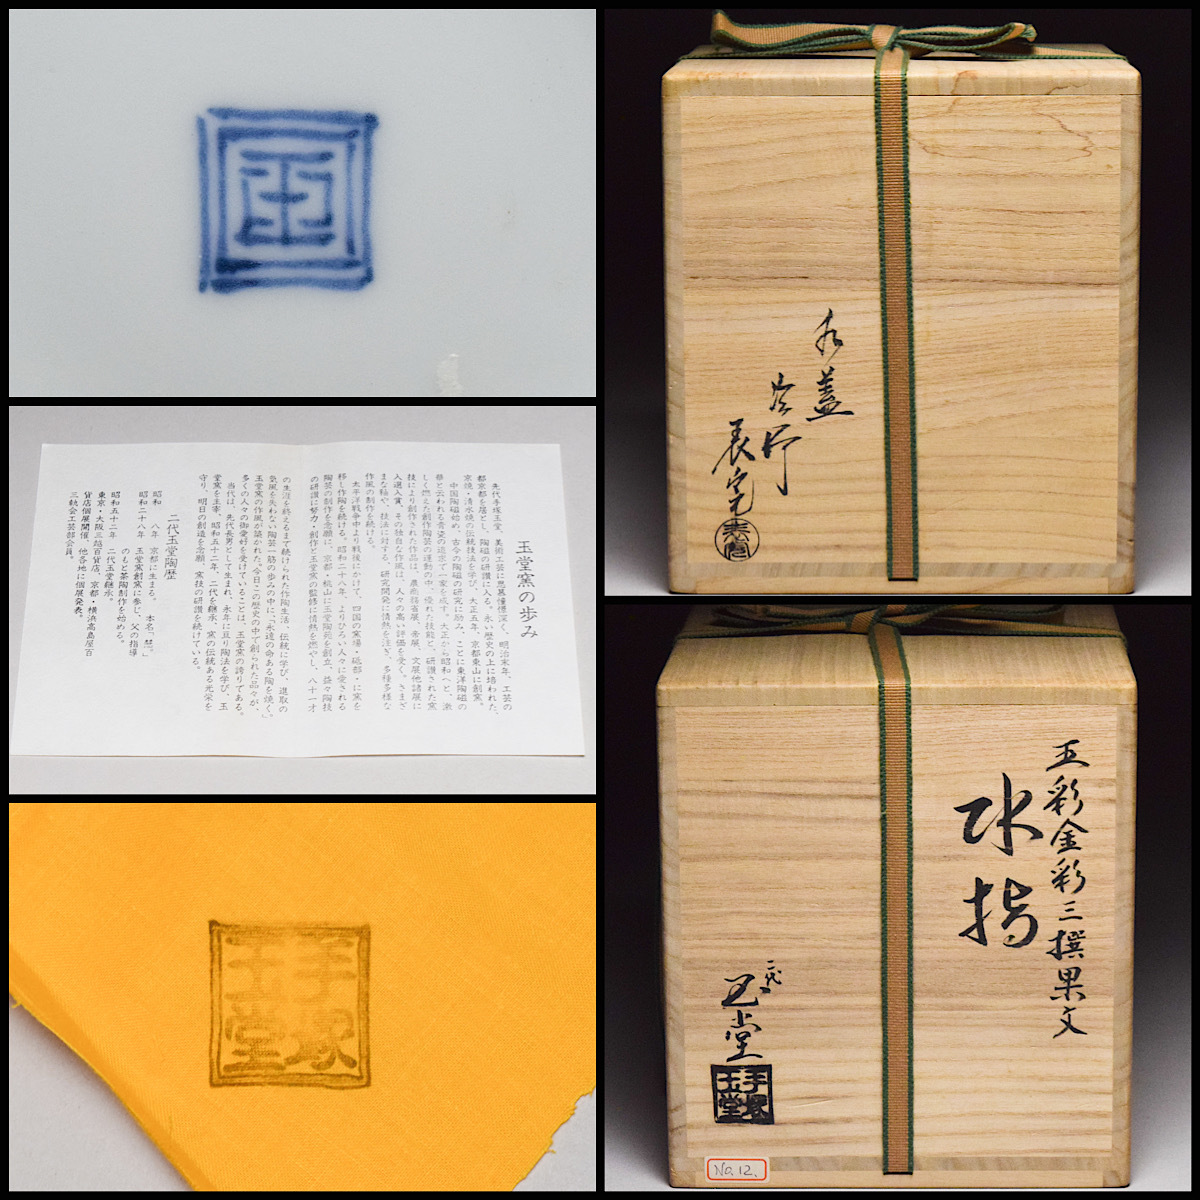 玉
玉堂窯の歩み
先代手塚玉堂、美術工芸に思慕憧憬深く、明治末年、工芸の
都京都を居とし、陶磁の研讃に入る。永い歴史の上に培われた、
京焼・清水焼の伝統技法を学び、大正五年、京都東山に創窯。
中国陶磁始め、古今の陶磁の研究に励み、ことに東洋陶磁の
華と云われる青瓷の追求で一家を成す。大正から昭和へと、激
しく燃えた創作陶芸の運動の中、優れた技能と、研讃された窯
技により創作された作品は、農商務省展、帝展、文展他諸展に
入選入賞、その独自な作風は、人々の高い評価を受く。さまざ
まな釉や、技法に対する、研究開発に情熱を注ぎ、多種多様な
作風の制作を続ける。
太平洋戦争中より戦後にかけて、四国の窯場・砥部・に窯を
移し作陶を続ける。昭和二十八年、よりひろい人々に愛される
陶芸の制作を念願に、京都・桃山に玉堂陶苑を創立、益々陶技
の研讃に努力・創作と玉堂窯の監修に情熱を燃やし、八十一才
の生涯を終えるまで続けられた作陶生活、伝統に学び、進取の
気風を失わない陶芸一筋の歩みの中に「永遠の命ある陶を焼く」
玉堂窯の作風が築かれた。今日この歴史の中で創られた品々が、
多くの人々の御愛好を受けていることは、玉堂窯の誇りである。
当代は、先代長男として生まれ、永年に亘り陶法を学び、玉
堂窯を主宰、昭和五十二年、二代を継承、窯の伝統ある光栄を
守り、明日の創造を念願、窯技の研讃を続けている。
二代玉堂陶歴
昭和　八年　京都に生まる。
昭和二十八年　玉堂窯創窯に参じ、父の指導
のもと茶陶制作を始める。
昭和五十二年　二代玉堂継承。
東京・大阪三越百貨店、京都・横浜高島屋百
貨店個展開催、他各地に個展発表。
三軌会工芸部会員。
手塚
玉堂
共蓋
宗哲
五彩金彩三撰果文
水指
二代
玉堂
手塚
玉堂
No.12.